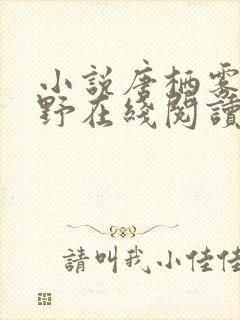 小說唐栖雾
野在綫閱讀
請叫我小佳佳